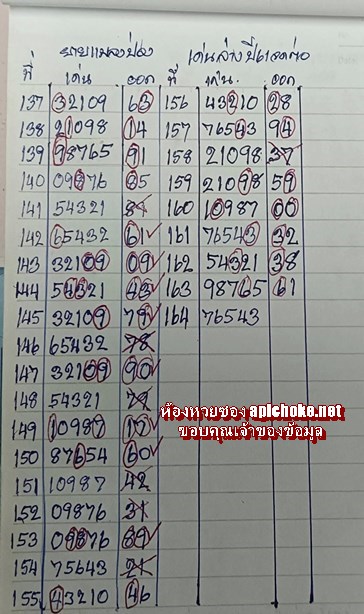 รายแมลงป่อง เด่นล่างปี
ที่ เด่น ออก ที่ เด่น ออก
137 32109 63 156 43210 28
138 21098 14 157 76543 94
139 98765 91 158 21098 37
140 09876 85 159 21098 59
141 54321 160 10987 00
142 65432 61 161 76543 32
143 32109 09 162 54321 38
144 54321 43 163 98765 61
145 32109 79 164 76543
146 65432 78
147 32109 90
148 54321 79
149 10987 17
150 87654 60
151 10987 42
152 09876 31
153 09876 89
154 75643 21
155 43210 46
ห้องหวยซอง apichoke.net
ขอบคุณเจ้าของข้อมูล